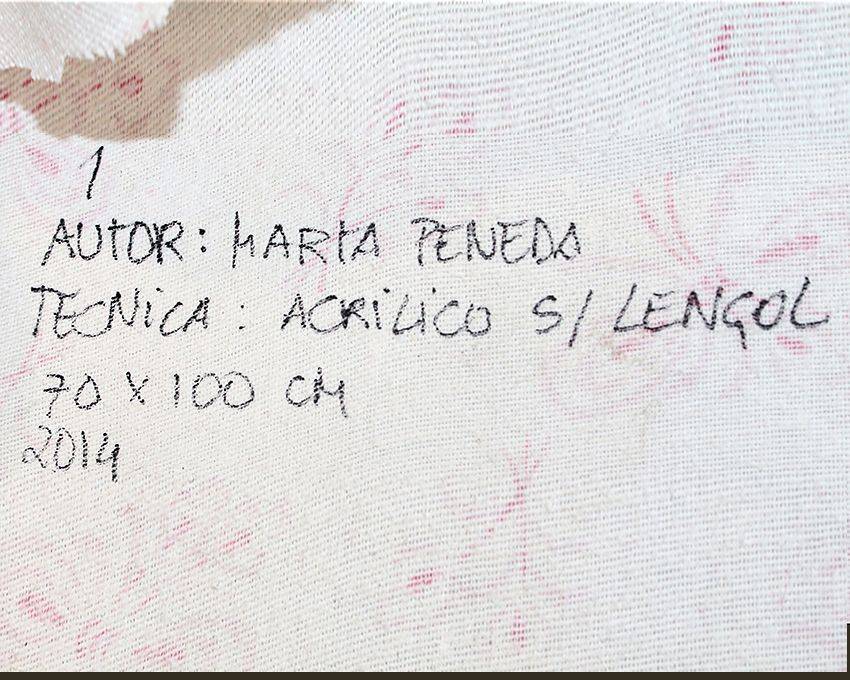 1
AUTOR: MARTA PENEDA
TECNICA: ACRILICO S/ LENÇOL
70 X 100 CM
2014